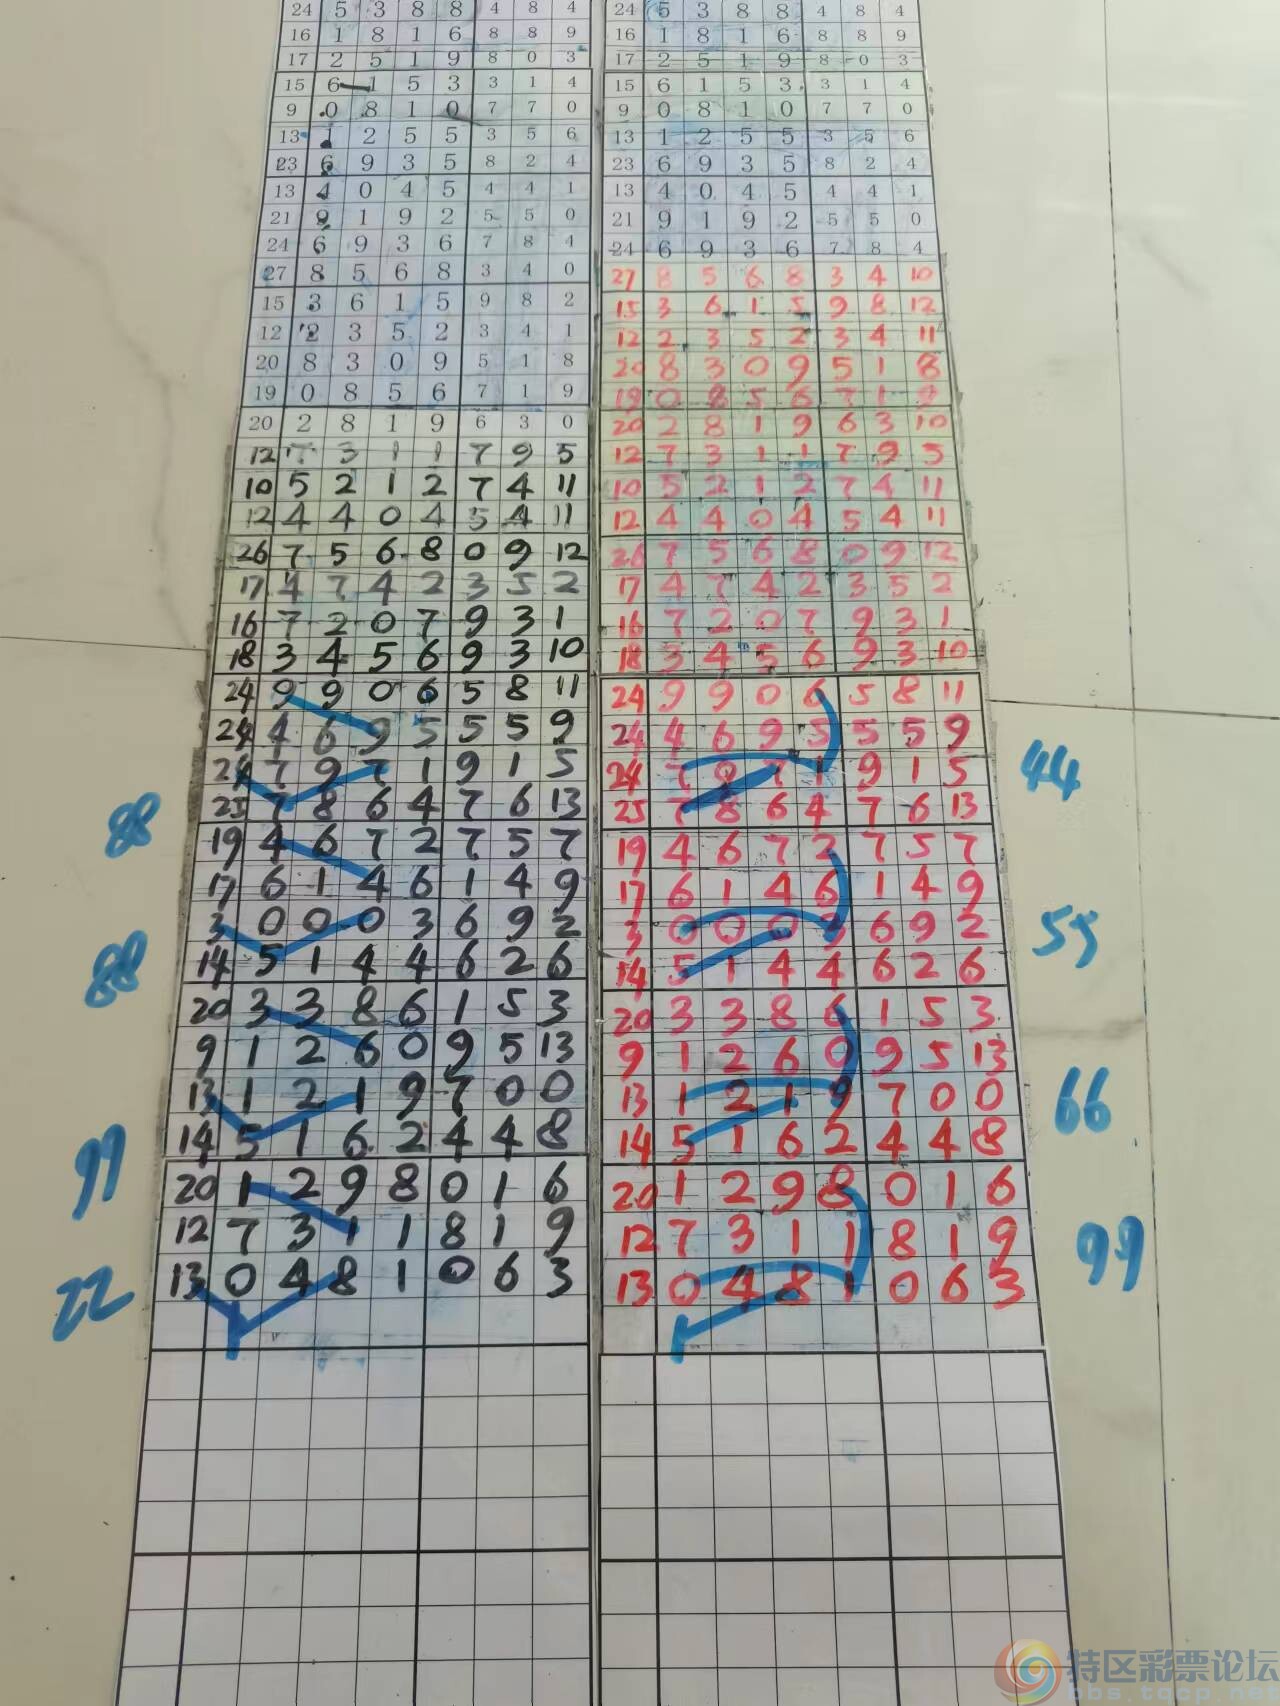 24 5 3 8 8 4 8 4 24 5 3 8 8 4 8 4
16 1 8 1 6 8 8 9 16 1 8 1 6 8 8 9
17 2 5 1 9 8 0 3 17 2 5 1 9 8 0 3
15 6 1 5 3 3 1 4 15 6 1 5 3 3 1 4
9 0 8 1 0 7 7 0 9 0 8 1 0 7 7 0
13 1 2 5 5 3 5 6 13 1 2 5 5 3 5 6
23 6 9 3 5 8 2 4 23 6 9 3 5 8 2 4
13 4 0 4 5 4 4 1 13 4 0 4 5 4 4 1
21 9 1 9 2 5 5 0 21 9 1 9 2 5 5 0
24 6 9 3 6 7 8 4 24 6 9 3 6 7 8 4
27 8 5 6 8 3 4 0 27 8 5 6 8 3 4 10
15 3 6 1 5 9 8 2 15 3 6 1 5 9 8 12
12 2 3 5 2 3 4 1 12 2 3 5 2 3 4 11
20 8 3 0 9 5 1 8 20 8 3 0 9 5 1 8
19 0 8 5 6 7 1 9 19 0 8 5 6 7 1 9
20 2 8 1 9 6 3 0 20 2 8 1 9 6 3 10
12 7 3 1 1 7 9 5 12 7 3 1 1 7 9 5
10 5 2 1 2 7 4 11 10 5 2 1 2 7 4 11
12 4 4 0 4 5 4 11 12 4 4 0 4 5 4 11
26 7 5 6 8 0 9 12 26 7 5 6 8 0 9 12
17 4 7 4 2 3 5 2 17 4 7 4 2 3 5 2
16 7 2 0 7 9 3 1 16 7 2 0 7 9 3 1
18 3 4 5 6 9 3 10 18 3 4 5 6 9 3 10
24 9 9 0 6 5 8 11 24 9 9 0 6 5 8 11
24 4 6 9 5 5 5 9 24 4 6 9 5 5 5 9
24 7 9 7 1 9 1 5 24 7 9 7 1 9 1 5 44
88 25 7 8 6 4 7 6 13 25 7 8 6 4 7 6 13
19 4 6 7 2 7 5 7 19 4 6 7 2 7 5 7
17 6 1 4 6 1 4 9 17 6 1 4 6 1 4 9
3 0 0 0 3 6 9 2 3 0 0 0 3 6 9 2 55
88 14 5 1 4 4 6 2 6 14 5 1 4 4 6 2 6
20 3 3 8 6 1 5 3 20 3 3 8 6 1 5 3
9 1 2 6 0 9 5 13 9 1 2 6 0 9 5 13
13 1 2 1 9 7 0 0 13 1 2 1 9 7 0 0 66
99 14 5 1 6 2 4 4 8 14 5 1 6 2 4 4 8
20 1 2 9 8 0 1 6 20 1 2 9 8 0 1 6
12 7 3 1 1 8 1 9 12 7 3 1 1 8 1 9 99
22 13 0 4 8 1 0 6 3 13 0 4 8 1 0 6 3
特区彩票论坛
bbs.tqcp.net